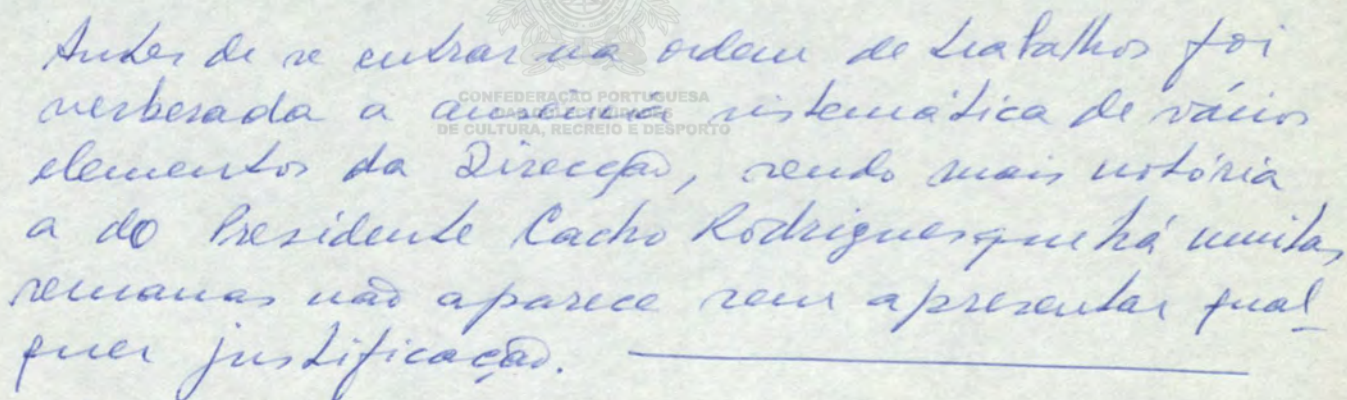 Antes de se entrar na ordem de trabalhos foi
verberada a ausência sistemática de vários
elementos da Direcção, sendo mais notória
a do Presidente Cacho Rodrigues que há muitas
semanas não aparece sem apresentar qual_
quer justificação.
CONFEDERAÇÃO PORTUGUESA
DE CULTURA, RECREIO E DESPORTO